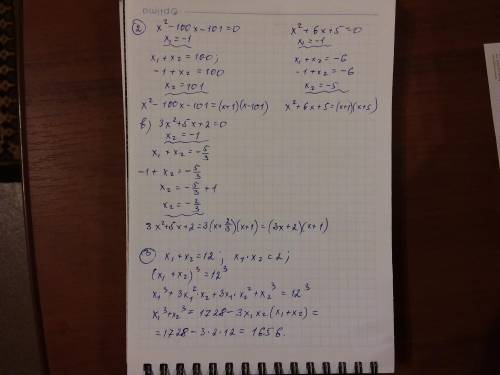 Optima
② x²-100x-101=0
x₁=-1
x₁+x₂=100;
-1+x₂=100
x₂=101
x²-100x-101=(x+1)(x-101)
x²+6x+5=0
x₁=-1
x₁+x₂=-6
-1+x₂=-6
x₂=-5
x²+6x+5=(x+1)(x+5)
в) 3x²+5x+2=0
x₂=-1
x₁+x₂=-5/3
-1+x₂=-5/3
x₂=-5/3+1
x₂=-2/3
3x²+5x+2=3(x+2/3)(x+1)=(3x+2)(x+1)
③ x₁+x₂=12; x₁·x₂=2;
(x₁+x₂)³=12³
x₁³+3x₁²·x₂+3x₁·x₂²+x₂³=12³
x₁³+x₂³=1728-3x₁x₂(x₁+x₂)=
=1728-3·2·12=1656.